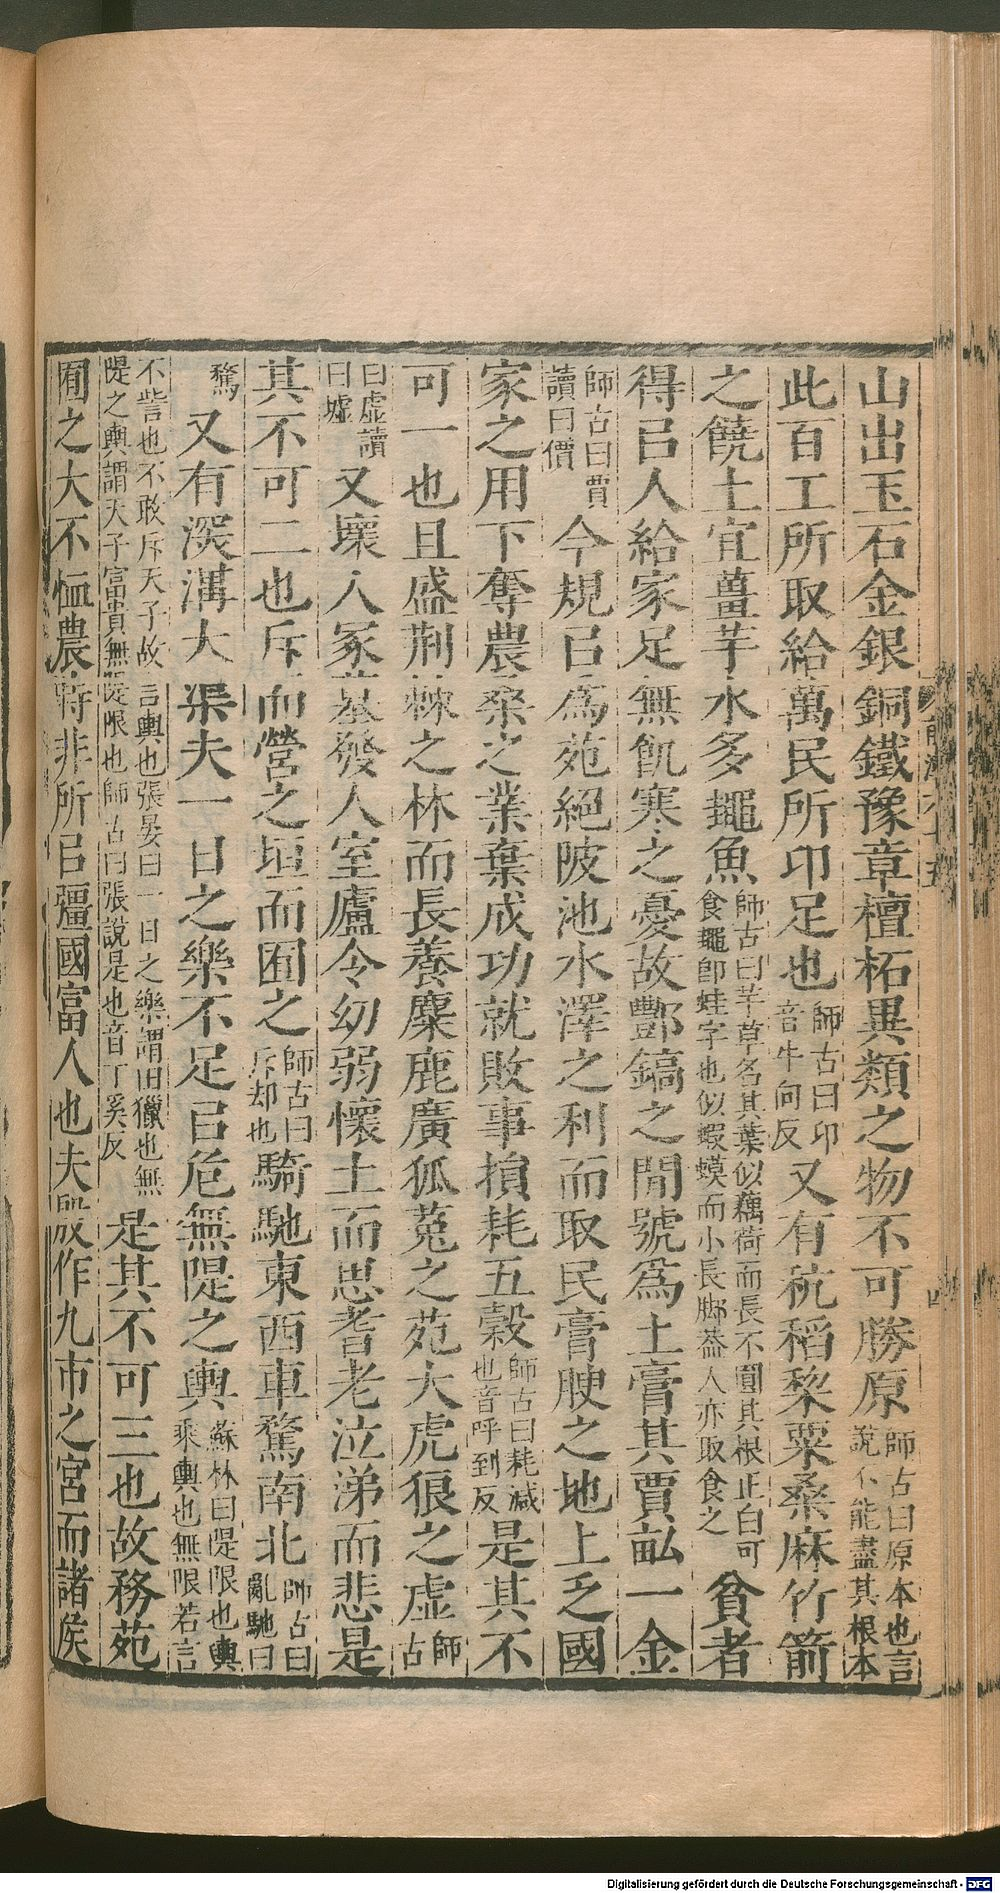 山出玉石金銀銅鐵豫章檀柘異類之物不可勝原師古曰原本也言說不能盡其根本
此百工所取給萬民所卬足也師古曰卬音牛向反又有秔稻棃粟桑麻竹箭
之饒土宜薑芋水多䵷魚師古曰芋草名其葉似藕荷而長不圓其根正白可食䵷卽蛙字也似蝦蟆而小長脚葢人亦取食之貧者
得㠯人給家足無飢寒之憂故酆鎬之閒號爲土膏其賈畝一金
師古曰賈讀曰價今規㠯爲苑絕陂池水澤之利而取民膏腴之地上乏國
家之用下奪農桑之業棄成功就敗事損耗五穀師古曰耗減也音呼到反是其不
可一也且盛荆棘之林而長養麋鹿廣狐菟之苑大虎狼之虛師古
曰虛讀曰墟又壞人冢墓發人室廬令幼弱懷土而思耆老泣涕而悲是
其不可二也斥而營之垣而囿之師古曰斥却也騎馳東西車騖南北師古曰亂馳曰
騖又有深溝大渠夫一日之樂不足㠯危無隄之輿蘇林曰隄限也輿乘輿也無限若言
不訾也不敢斥天子故言輿也張晏曰一日之樂謂田獵也無隄之輿謂天子富貴無隄限也師古曰張說是也音丁奚反是其不可三也故務苑
囿之大不恤農時非所㠯彊國富人也夫殷作九市之宮而諸矦
前漢六十五
四
Digitalisierung gefördert durch die Deutsche Forschungsgemeinschaft - DFG